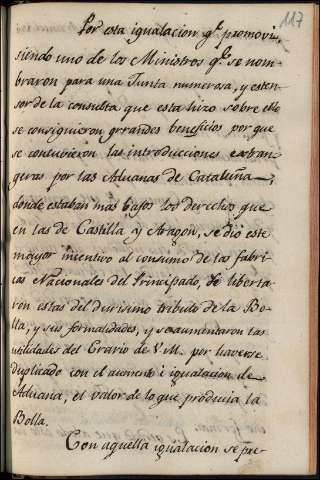 117
Por esta igualacion q.e promovi,
siendo uno de los Ministros q.e se nom-
braron para una Junta numerosa, y exten-
sor de la consulta que esta hizo sobre ello
se consiguieron grrandes beneficios por que
se contuvieron las introducciones extran-
geras por las Aduanas de Cataluña,
donde estaban mas bajos los derechos que
en las de Castilla y Aragon, se dió este
mayor incentivo al consumo de las fabri-
cas Nacionales del Principado, se liberta-
ron estas del durisimo tributo de la Bo-
lla, y sus formalidades, y se aumentaron las
utilidades del Erario de V.M. por haverse
duplicado con el aumento é igualacion de
Aduana, el valor de lo que producia la
Bolla.
Con aquella igualacion se pre-